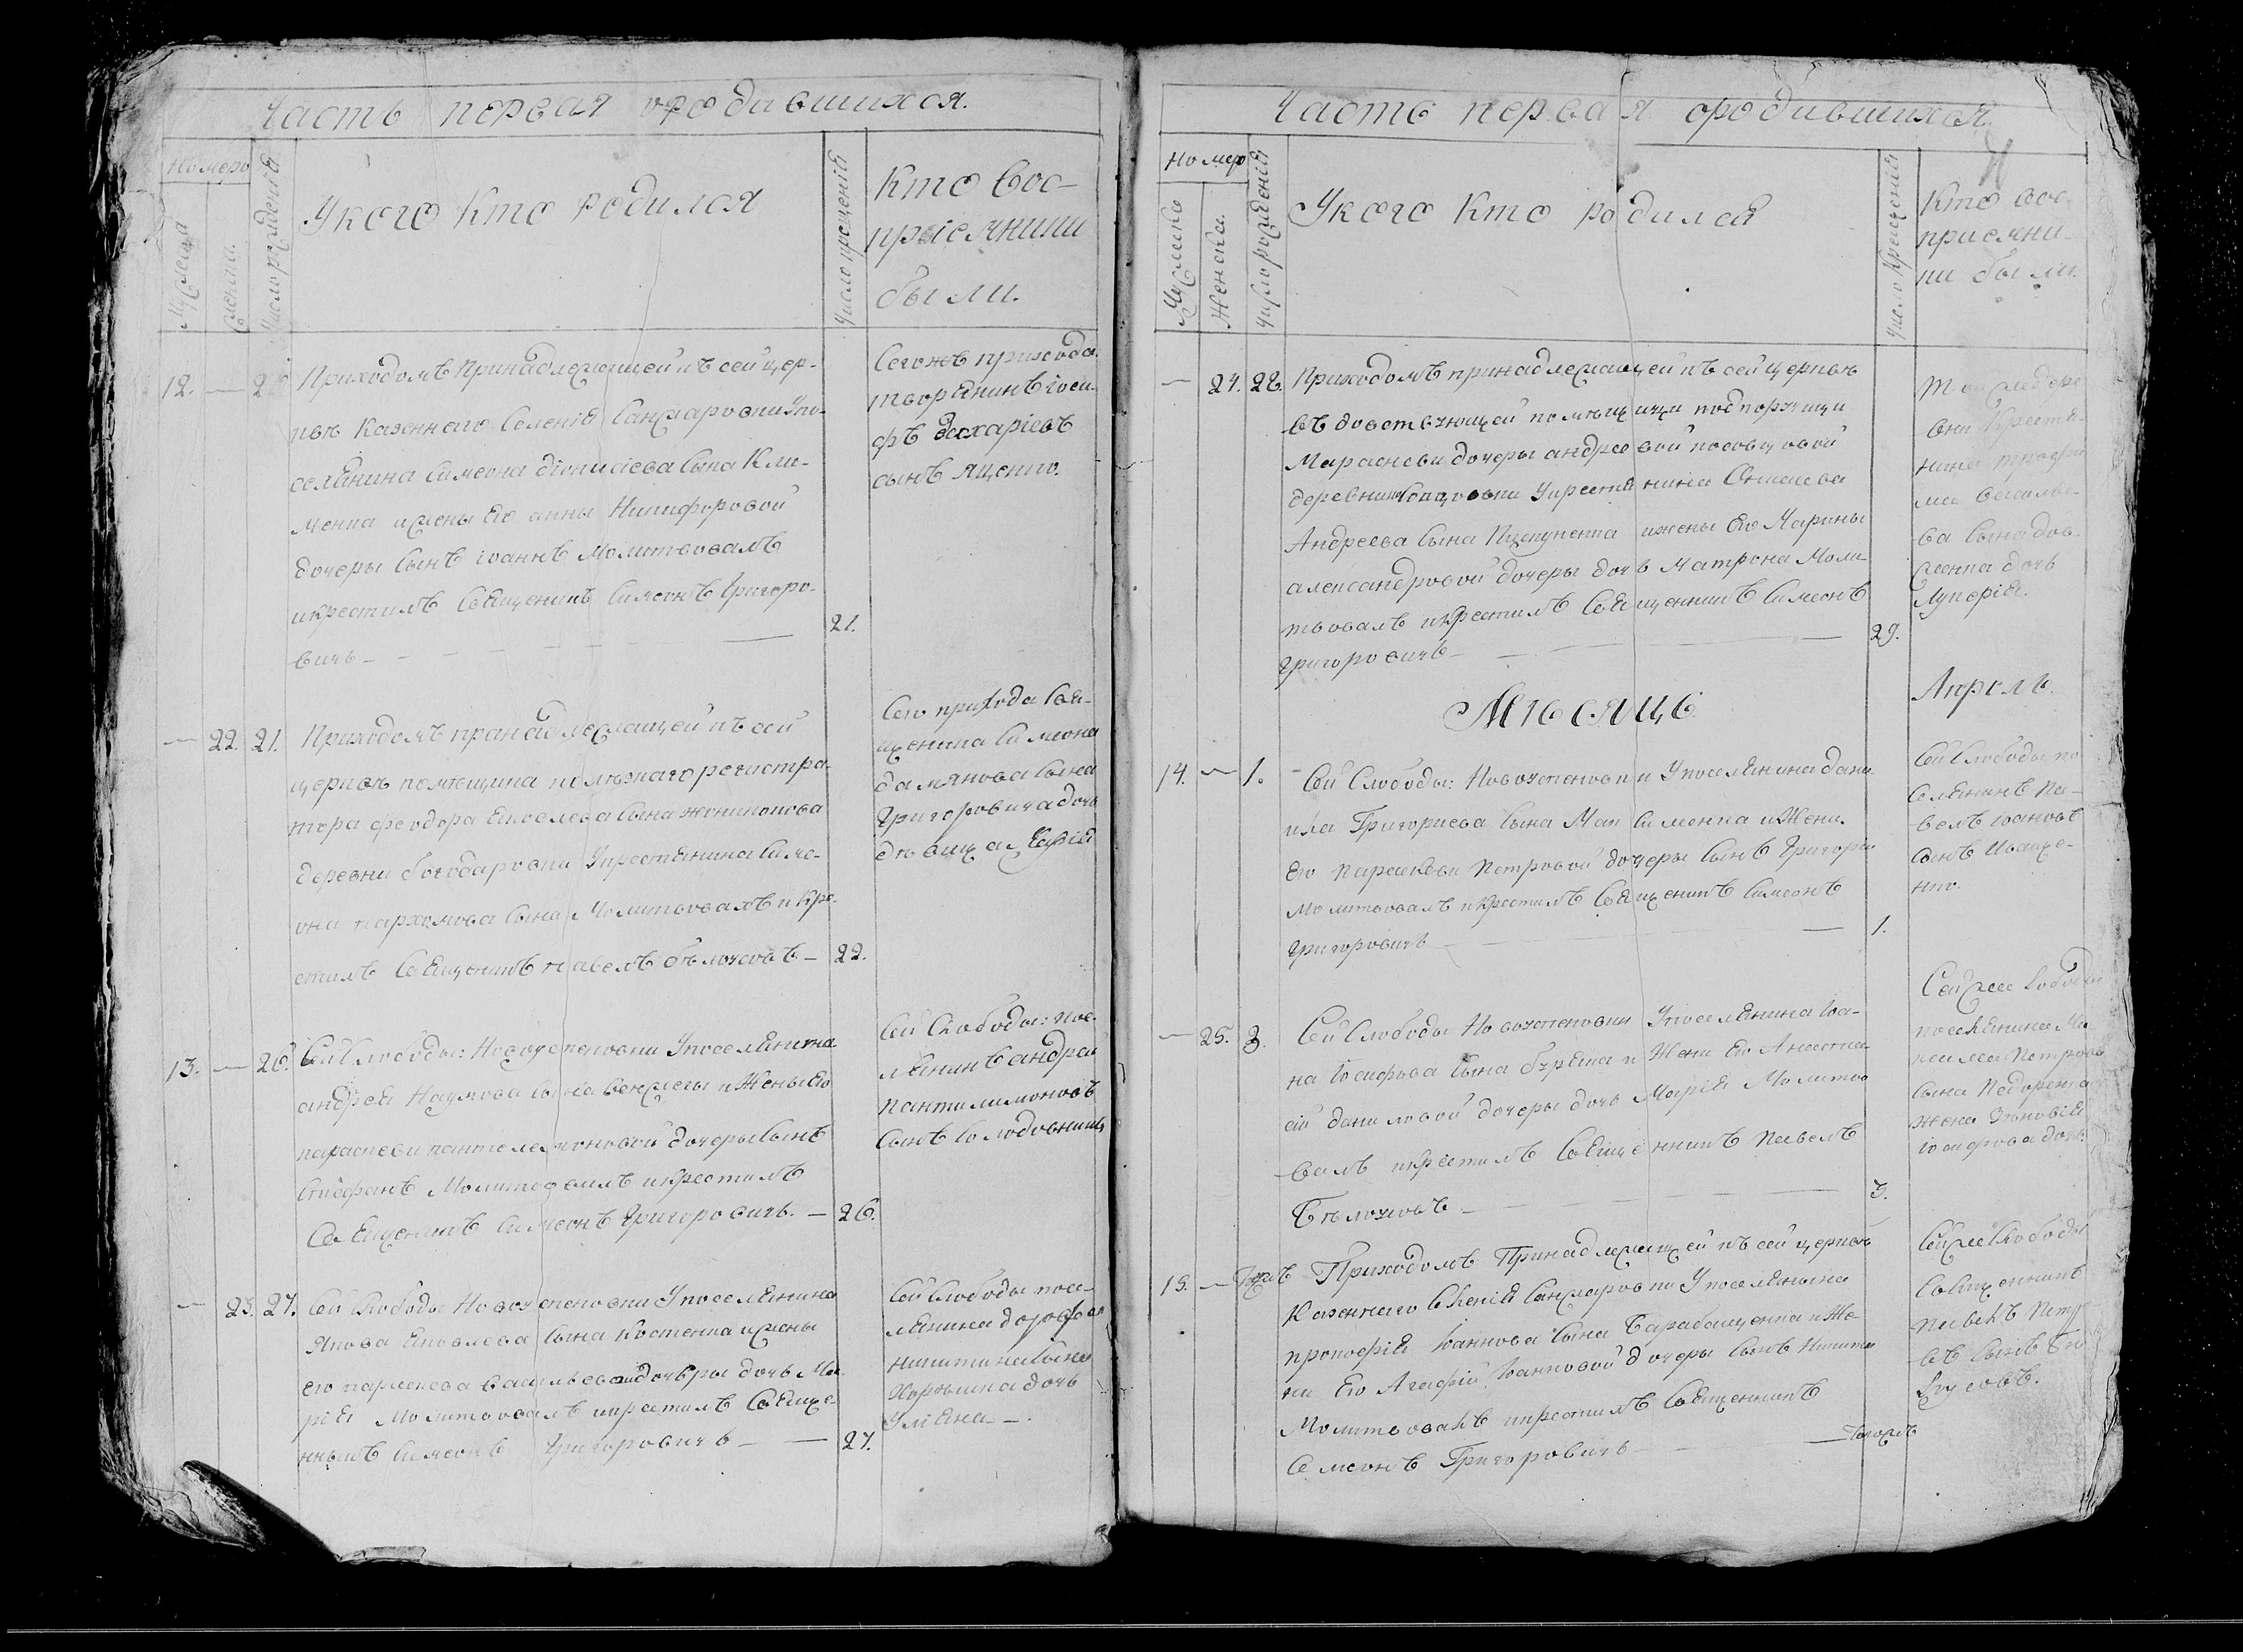 Часть первая ородившихся.
Номеръ
Мужеска
Числорожденїя
Укого Кто родился
Число крещенїя
Кто вос-
прїемники
были.
12. —
Приходомъ Принадлежащей къ сей цер-
квѣ Казеннаго Селенїя Санжаровки Упо-
селянина Симеона дїонисїева Сына Кли-
менка ижены Его анны Никифоровой
дочеры Сынъ їоаннъ Молитвовалъ
икрестилъ Священикъ Симеонъ Григоро-
вичь —
21.
Сегожъ прихода
творянинъ їоси-
фъ захарїевъ
сынъ Яценко.
— 22. 21.
Приходомъ принадлежащей къ сей
церквѣ помѣщика колѣжаго регистра-
тора феодора Яковлева Сына
деревни богодаровки Укрестянина Симе-
она пархомова Сына Молитвовалъ и Кре-
стилъ Священикъ павелъ бѣлоусовъ —
22.
Сего прихода Свя-
щеника Симеона
дамянова Сына
Григоровича дочь
дѣвица
13. — 26.
Сей Слободы: Новоуспеновки Упоселянина
андрея Наумова Сына и Жены Его
параскеви пантелеимоновой дочеры Сынъ
Стефанъ Молитвовалъ икрестилъ
Священикъ Симеонъ Григоровичь. —
26.
Сей Слободы: посе-
лянинъ андрей
пантилимоновъ
Сынъ Солодовникъ
— 23. 27.
Сей Слободы Новоуспеновки Упоселянина
Якова Яковлева Сына Костенка ижены
его васильевой дочеры дочь Ма-
рїя Молитвовалъ икрестилъ Свяще-
нникъ Симеонъ Григоровичь —
27.
Сей Слободы посе-
лянина дорофея
никитина Сына
дочь
Улїяна —.
Часть первая ородившихся
Номеръ
Мужеска
Женска.
Числорожденїя
Укого Кто родился
Число Крещенїя
Кто вос-
приемни-
ки были.
— 24. 28.
Приходомъ принадлежащей къ сей церквѣ
въдовствующей помѣщици подпоручици
Параскеви дочеры андреевой
деревни Укрестянина
Андреева Сына ижены Его Марины
александровой дочеры дочь Матрона Моли-
твовалъ икрестилъ Священникъ Симеонъ
Григоровичь —
29.
Той же дере-
вни Крестя-
нина трофи-
ма василье-
ва Сына дов-
женка дочь
Лукерїя.
Мѣсяць
Апрель.
14. — 1.
Сей Слободы: Новоуспеновки Упоселянина дани-
ила Григориева Сына Максименка и Жени
Его Параскеви Петровой дочеры Сынъ Григорїй
Молитвовалъ икрестилъ Священикъ Симеонъ
Григоровичь
1.
Сей Слободы по-
Селянинъ Па-
велъ їоановъ
Сынъ Иваще-
нко.
— 25. 3.
Сей Слободы Новоуспеновки Упоселянина їоа-
на їосифова Сына и Жени Его Анастаси-
ей даниловой дочеры дочь Марїя Молитво-
валъ икрестилъ Священникъ Павелъ
Бѣлоусовъ —
3.
Сей же Слободы
поселянина Ма-
ксима Петрова
Сына Педоренка
жена Зѣновїя
їосифова дочь.
15. — Тогожъ
Приходомъ Принадлежащей къ сей церквѣ
Казеннаго Селенїя Санжаровки Упоселянина
прокофїя їоаннова Сына Барабащенка и Же-
ни Его Агафїй їоанновой дочеры Сынъ Никита
Молитвовалъ икрестилъ Священникъ
Семеонъ Григоровичь —
Тогожъ
Сей же Слободы
Священникъ
Павелъ Петро-
въ Сынъ Бѣло-
усовъ.